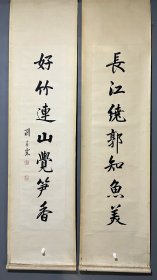 長江繞郭知魚美
好竹連山覺筍香